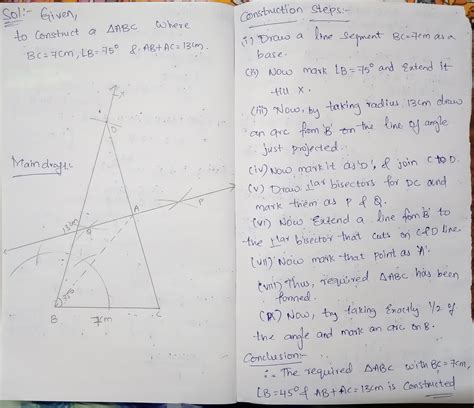 Sol:- Given,
to Construct a ΔABC where
BC=7cm, LB=75° & AB+AC=13cm.
Main draft:-
X
D
13cm
A
P
Q
75°
B
7cm
C
Construction Steps:-
(i) Draw a line segment BC=7cm as a
base.
(ii) Now mark LB=75° and Extend it
till X.
(iii) Now, by taking radius 13cm draw
an arc from 'B' on the line of angle
just projected.
(iv) Now mark it as 'D', & join C to D.
(v) Draw ⊥lar bisectors for DC and
mark them as P & Q.
(vi) Now Extend a line from 'B' to
the ⊥lar bisector that cuts on C-D line.
(vii) Now mark that point as 'A'.
(viii) Thus, required ΔABC has been
formed.
(ix) Now, by taking Exactly 1/2 of
the angle and mark an arc on B.
Conclusion:-
∴ The required ΔABC with BC=7cm,
LB=45° & AB+AC=13cm is Constructed